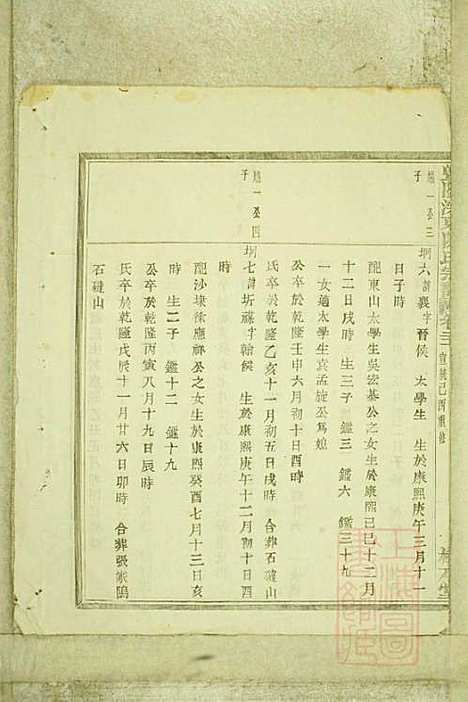 陳氏宗譜 卷三 宣統己酉重修
煾一公三子
坰六 諱襄 字晉侯 太學生 生於康熙庚午三月十一
日子時
配東山太學生吳宏基公之女生於康熙己巳十二月
十二日戌時 生三子 鑑三 鑑六 鑑三十九
一女適太學生袁孟旋公為媳
公卒於乾隆壬申六月初十日酉時
氏卒於乾隆乙亥十一月初五日戌時 合葬石磯山
煾一公四子
坰七 諱圻 字翰侯 生於康熙庚午十二月初十日酉
時
配沙埭徐應祁公之女生於康熙癸酉七月十三日亥
時 生二子 鑑十二 鑑十九
公卒於乾隆丙寅八月十九日辰時
氏卒於乾隆戊辰十一月廿六日卯時 合葬張家隝
石磯山